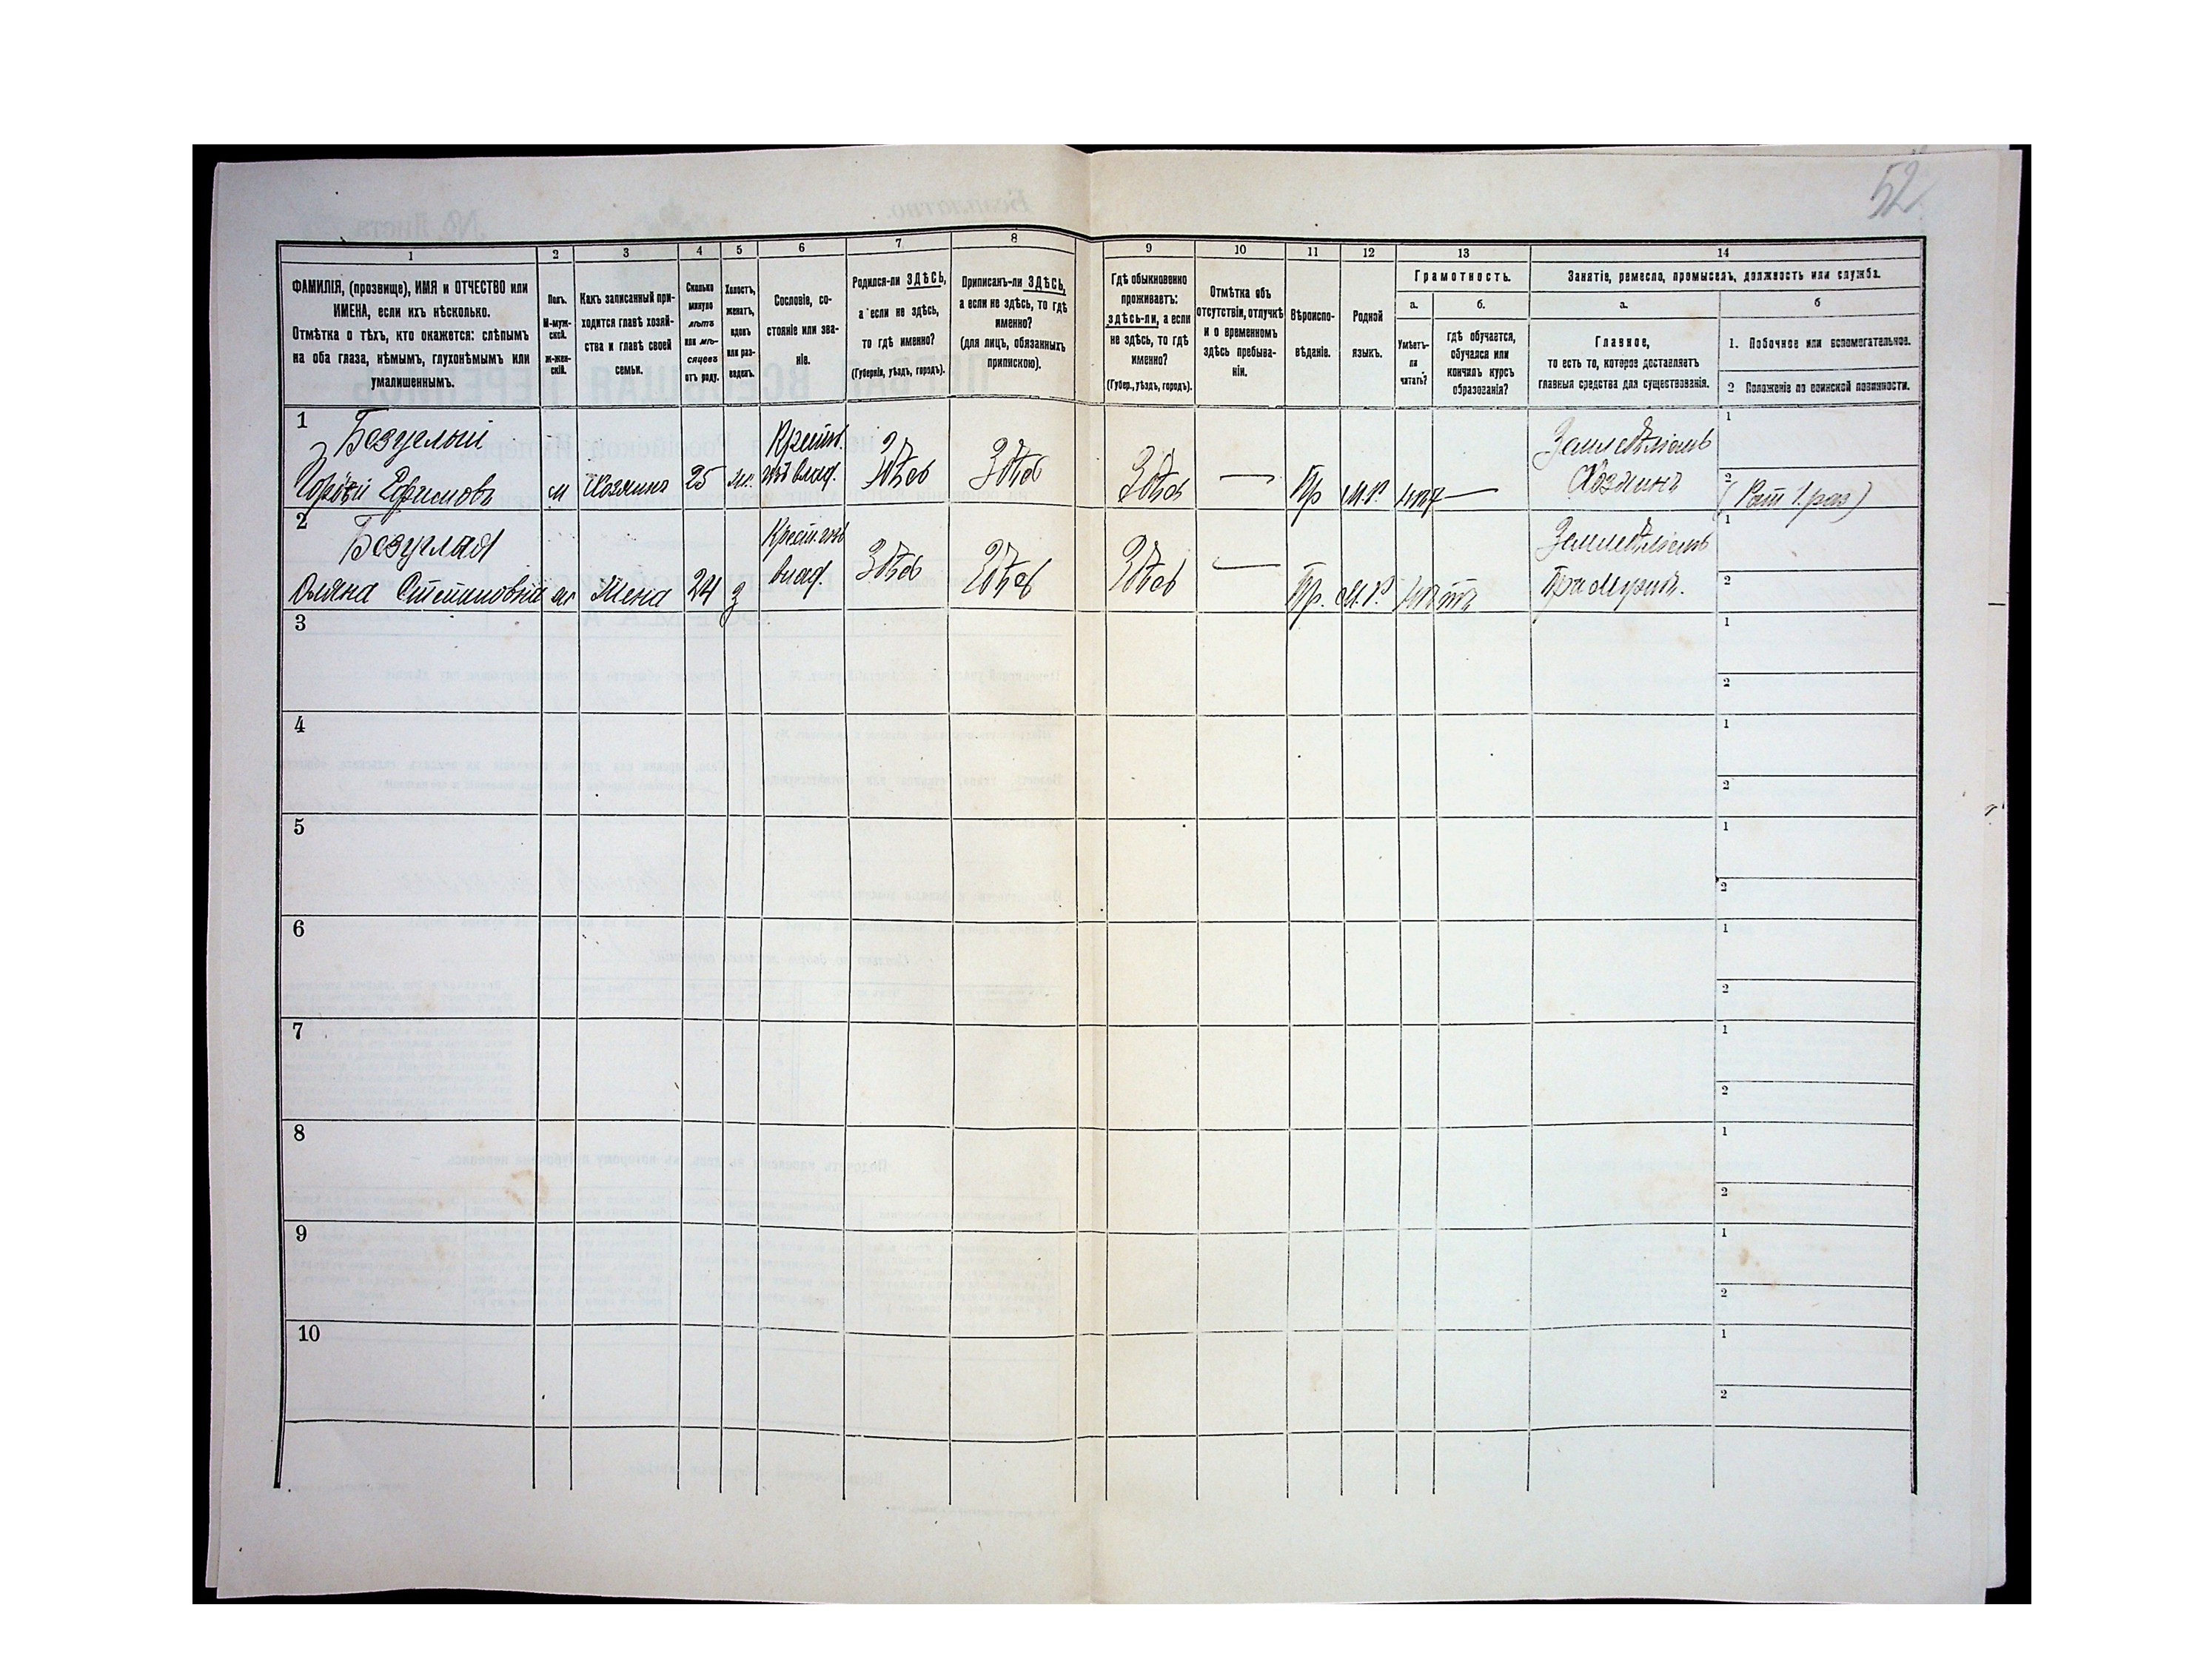 52
1
2
3
4
5
6
7
8
9
10
11
12
13
14
ФАМИЛІЯ, (прозвище), ИМЯ и ОТЧЕСТВО или
ИМЕНА, если ихъ нѣсколько.
Отмѣтка о тѣхъ, кто окажется: слѣпымъ
на оба глаза, нѣмымъ, глухонѣмымъ или
умалишеннымъ.
Полъ.
М-муж-
ской.
ж-жен-
скій.
Какъ записанный при-
ходится главѣ хозяй-
ства и главѣ своей
семьи.
Сколько
минуло
лѣтъ
или мѣ-
сяцевъ
отъ роду.
Холостъ,
женатъ,
вдовъ
или раз-
веденъ.
Сословіе, со-
стояніе или зва-
ніе.
Родился-ли ЗДѢСЬ,
а если не здѣсь,
то гдѣ именно?
(Губернія, уѣздъ, городъ).
Приписанъ-ли ЗДѢСЬ,
а если не здѣсь, то гдѣ
именно?
(для лицъ, обязанныхъ
припискою).
Гдѣ обыкновенно
проживаетъ:
здѣсь-ли, а если
не здѣсь, то гдѣ
именно?
(Губер., уѣздъ, городъ).
Отмѣтка объ
отсутствіи, отлучкѣ
и о временномъ
здѣсь пребыва-
ніи.
Вѣроиспо-
вѣданіе.
Родной
языкъ.
Грамотность.
а.
б.
Умѣетъ-
ли
читать?
гдѣ обучается,
обучался или
кончилъ курсъ
образованія?
Занятіе, ремесло, промыселъ, должность или служба.
а.
б
Главное,
то есть то, которое доставляетъ
главныя средства для существованія.
1. Побочное или вспомогательное.
2 Положеніе по воинской повинности.
1
Безуглый
Ефимовъ
м
Хозяинъ
25
Крестьян.
влад.
Здѣсь
Здѣсь
Здѣсь
—
Пр
М.Р.
нѣт —
Земледѣліемъ
Хозяинъ
1
2
(Рат 1. раз)
2
Безуглая
Степановна
Жена
24
з
Крест.
влад.
Здѣсь
Здѣсь
Здѣсь
—
Пр.
М.Р.
нѣтъ
Земледѣліемъ
При мужѣ.
1
2
3
1
2
4
1
2
5
1
2
6
1
2
7
1
2
8
1
2
9
1
2
10
1
2